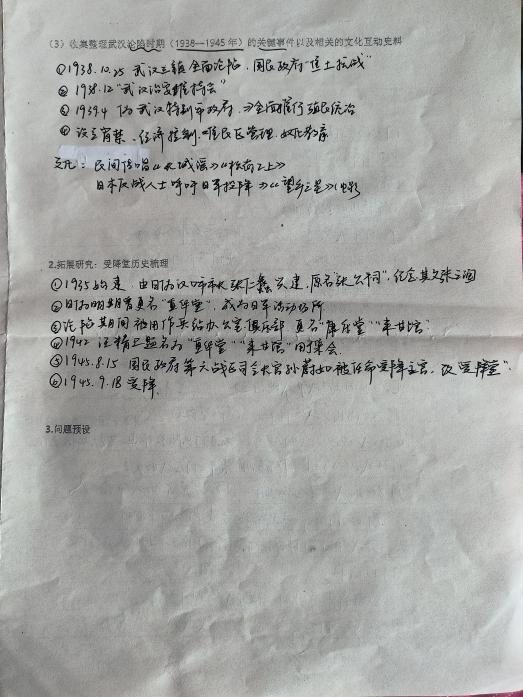 (3) 收集整理武汉沦陷时期(1938—1945年)的关键事件以及相关的文化互动史料
①1938.10.25 武汉三镇全面沦陷,国民政府"焦土抗战"
②1938.12"武汉治安维持会"
③1939.4 伪武汉特别市政府、全面推行殖民统治
④设立宵禁、经济控制、难民区管理、奴化教育
文化:民间传唱《长城谣》《松花江上》
日本反战人士呼吁日军投降》《望乡之星》电影
2.拓展研究:受降堂历史梳理
①1935始建,由时为汉口市市长张仁蠡兴建,原名"张公祠",纪念其父张之洞
成为日军活动场所
③沦陷期间被用作
④1942 汪精卫题名为 用集会
⑤1945.8.15 国民政府第六战区司令长官孙蔚如被任命受降主官,改"受降堂".
⑥1945.9.18 受降
3.问题预设